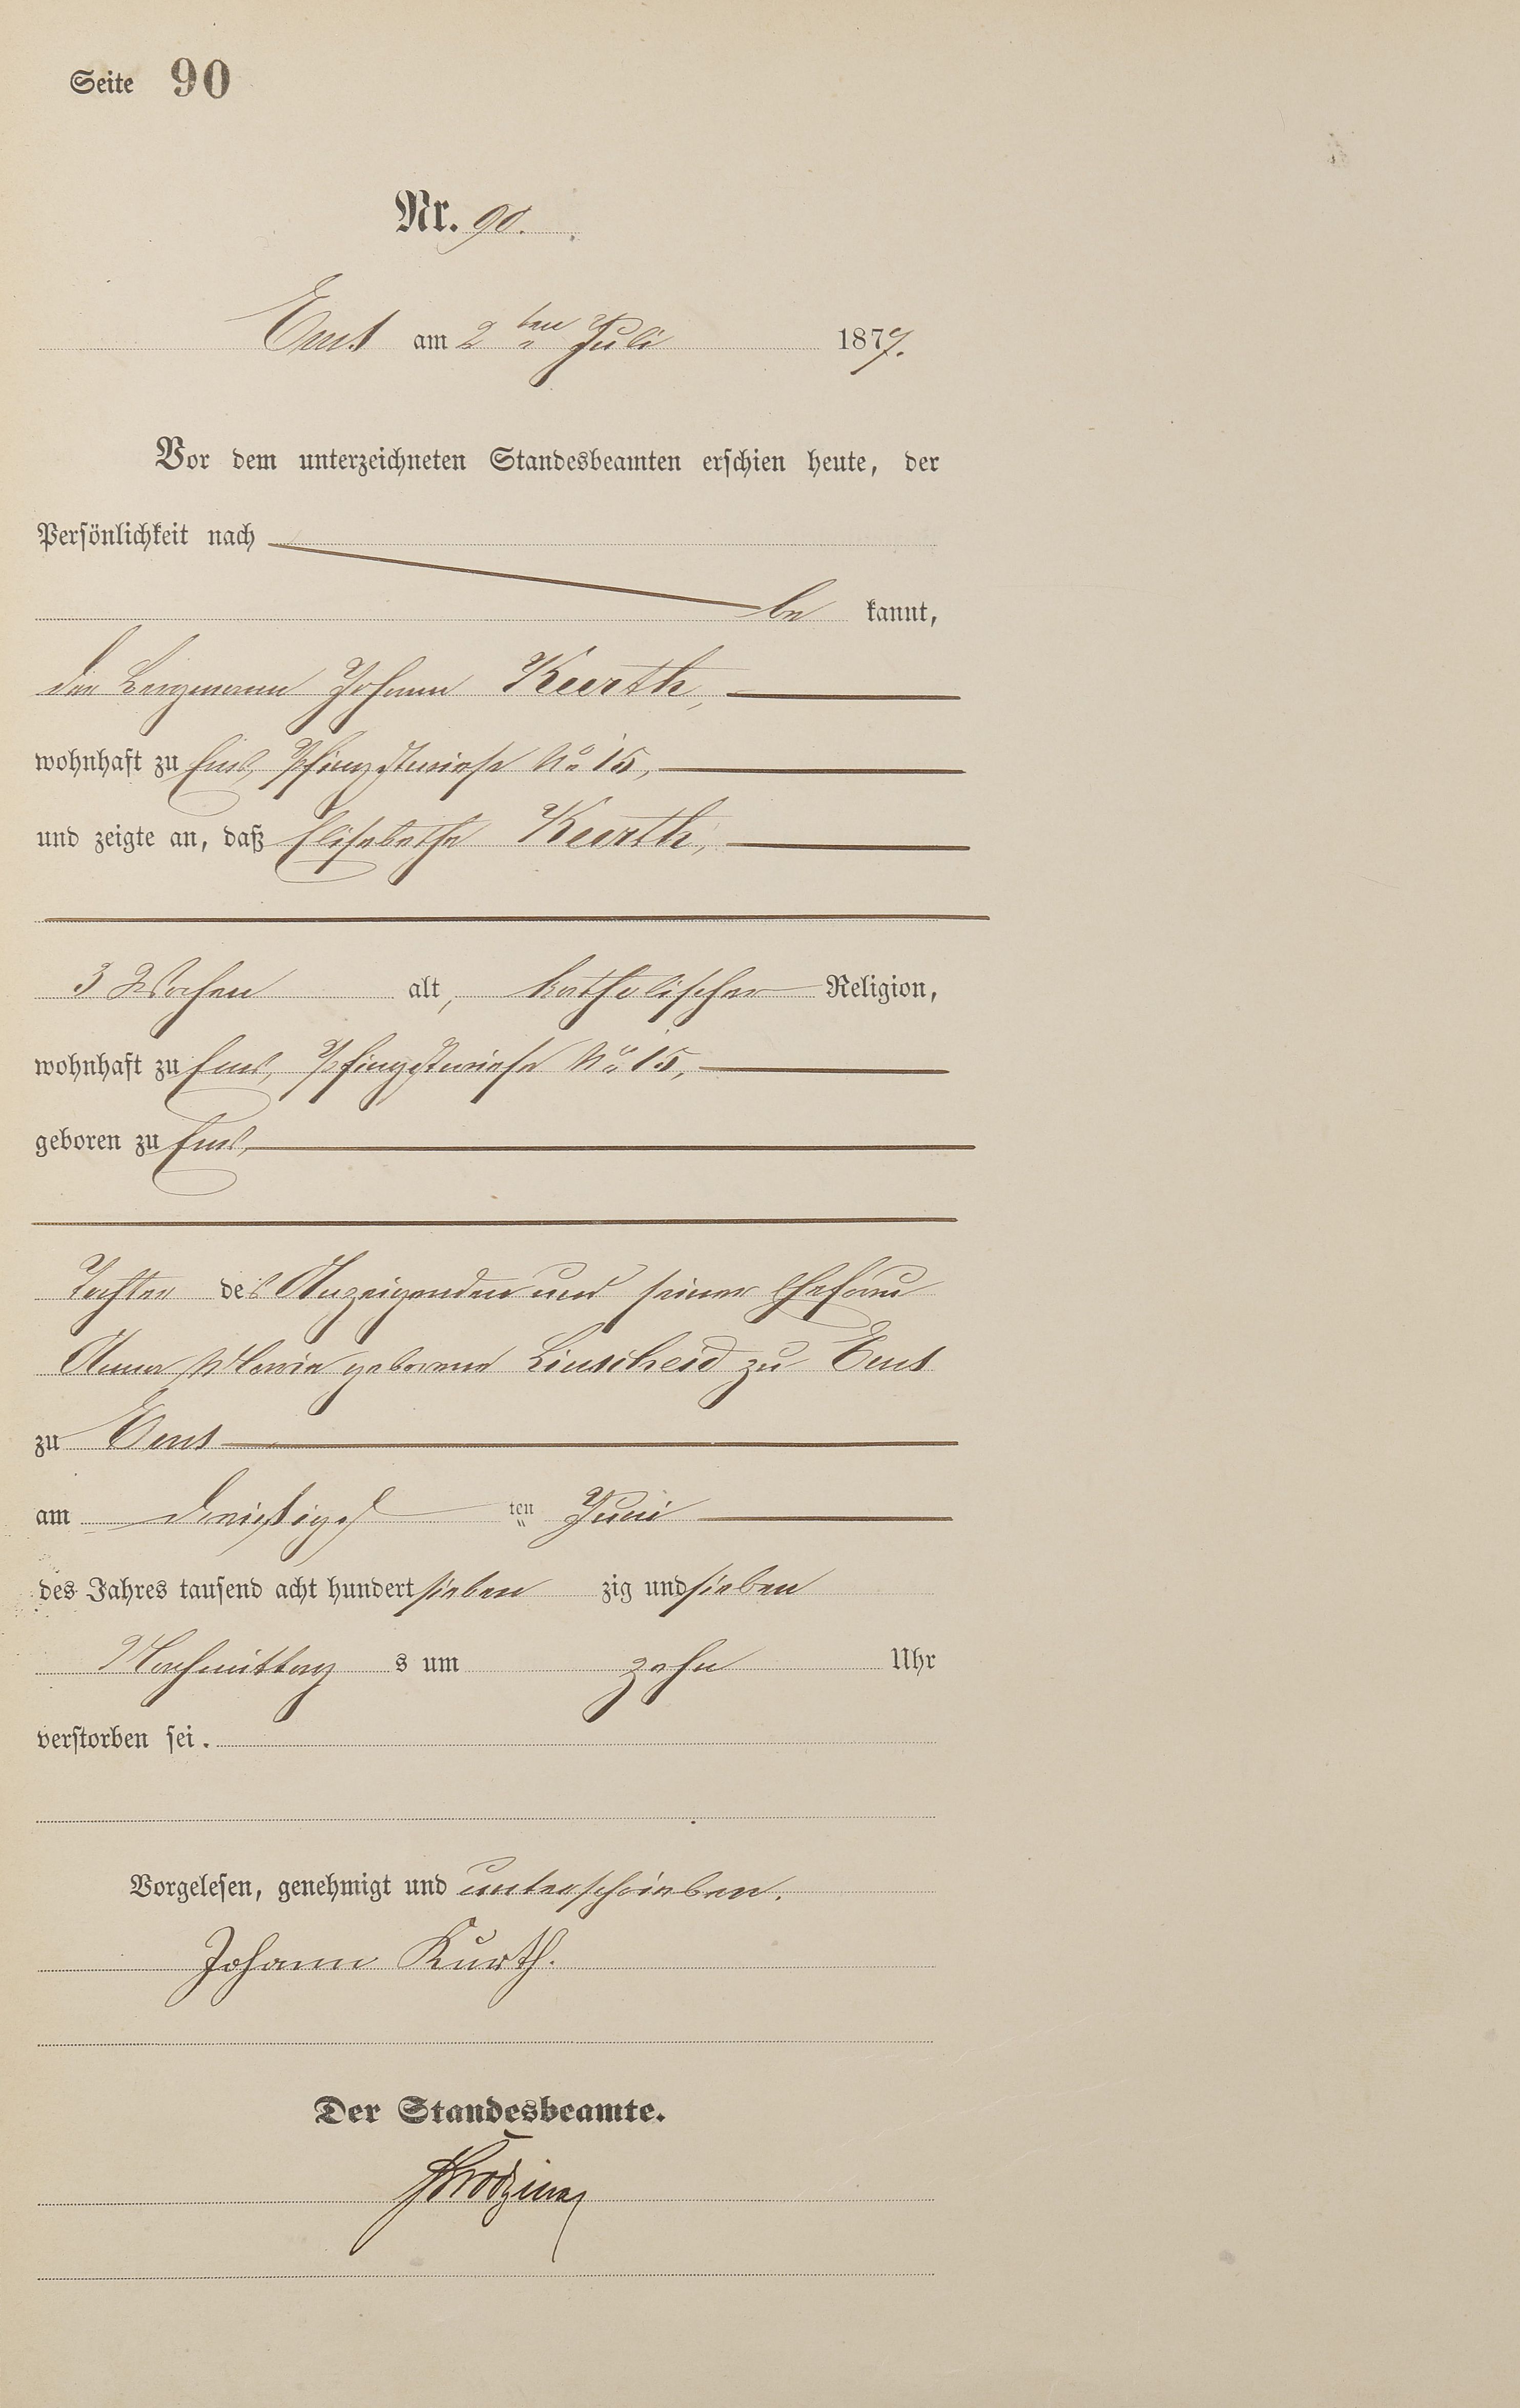 Seite 90
Nr. 90.
Ems am 2ten Juli 1877.
Vor dem unterzeichneten Standesbeamten erschien heute, der
Persönlichkeit nach
be kannt,
der Bergmann Johann Kurth,
wohnhaft zu Ems, Pfingstwiese No 15,
und zeigte an, daß Elisabetha Kurth,
3 Wochen alt, katholischer Religion,
wohnhaft zu Ems, Pfingstwiese No 15,
geboren zu Ems,
Tochter des Anzeigenden und seiner Ehefrau
Anna Maria geborene Linscheid zu Ems
zu Ems
am dreißigs ten Juni
des Jahres tausend acht hundert sieben zig und sieben
Nachmittag s um zehn Uhr
verstorben sei.
Vorgelesen, genehmigt und unterschrieben.
Johann Kurth.
Der Standesbeamte.